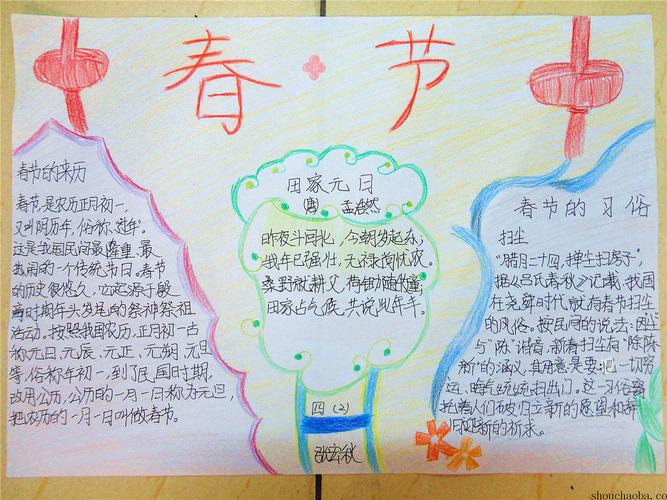 春节
春节的来历
春节,是农历正月初一,
又叫阴历年,俗称"过年"。
这是我国民间最隆重、最
热闹的一个传统节日。春节
的历史很悠久,它起源于殷
商时期年头岁尾的祭神祭祖
活动。按照我国农历,正月初一古
称元日、元辰、元正、元朔、元旦
等,俗称年初一,到了民国时期,
改用公历,公历的一月一日称为元旦,
把农历的一月一日叫做春节。
田家元日
孟浩然
昨夜斗回北,今朝岁起东;
我年已强壮,无禄尚忧农。
桑野就耕父,荷锄随牧童;
田家占气候,共说此年丰。
四(2)
张宏秋
春节的习俗
扫尘
"腊月二十四,掸尘扫房子",
据《吕氏春秋》记载,我国
在尧舜时代就有春节扫尘
的风俗。按民间的说法:因"尘"
与"陈"谐音,新春扫尘有"除陈
新"的涵义,其用意是要把一切穷
运、晦气统统扫出门。这一习俗寄
托着人们破旧立新的愿望和辞
旧迎新的祈求。
shouchaoba.co